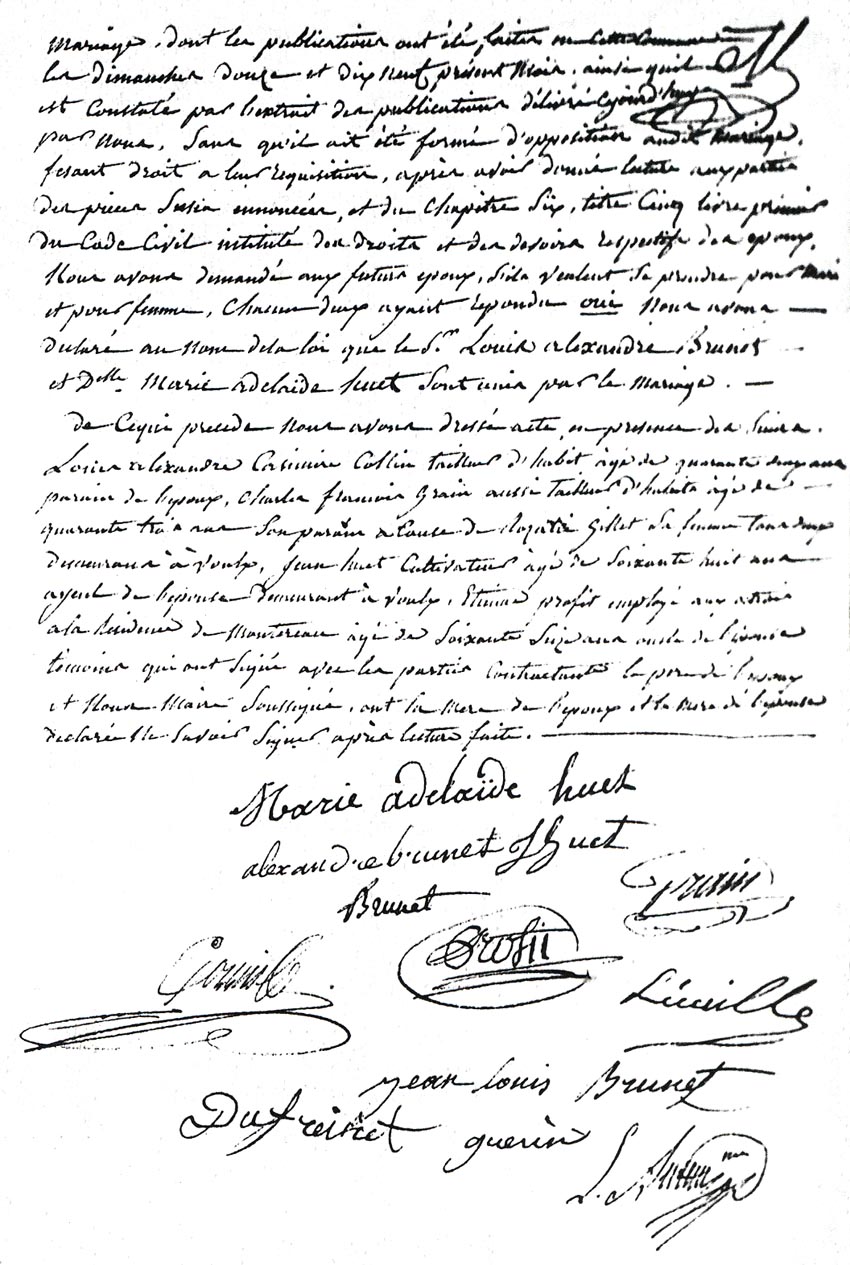 Mariage, dont les publications ont été faites en cette Commune
les dimanches douze et dix neuf présent Mois, ainsi qu'il
est Constaté par l'extrait des publications délivré Cejourd'huy
par Nous, Sans qu'il ait été formé d'opposition audit Mariage,
fesant droit a leur requisition, après avoir donné lecture aux parties
des pieces Susin ennoncées, et du Chapitre Six, titre Cinq livre premier
du Code Civil institulé des droits et des devoirs respectifs des epoux,
Nous avons demandé aux futurs epoux, S'ils veulent Se prendre pour Mari
et pour femme, Chacun d'eux ayant repondu oui Nous avons
declaré au Nom de la loi que le Sr. Louis alexandre Brunet
et Delle. Marie adelaide huet Sont unis par le Mariage.
de Ce qui precede Nous avons dressé acte, en presence des Sieurs
Louis alexandre Casimire Collin tailleur d'habit âgé de quarante deux ans
parain de l'epoux, Charles francois Grain aussi tailleur d'habits âgé de
quarante trois ans Son parain a Cause de Gillet Sa femme tous deux
demeurans à voulx, Jean huet Cultivateur âgé de Soixante huit ans
ayeul de l'epouse demeurant à voulx, Etienne profit employé aux
a la Residence de Montereau âgé de Soixante Seize ans oncle de l'epouse
temoins qui ont Signé avec les parties Contractantes le pere de l'epoux
et Nous Maire Soussigné, ont la Mere de l'epoux et la Mere de l'epouse
declaré Ne Savoir Signer après lecture faite.
Marie adelaïde huet
alexandre brunet J huet
Brunet
Grain
Profit
jean louis Brunet
guerin